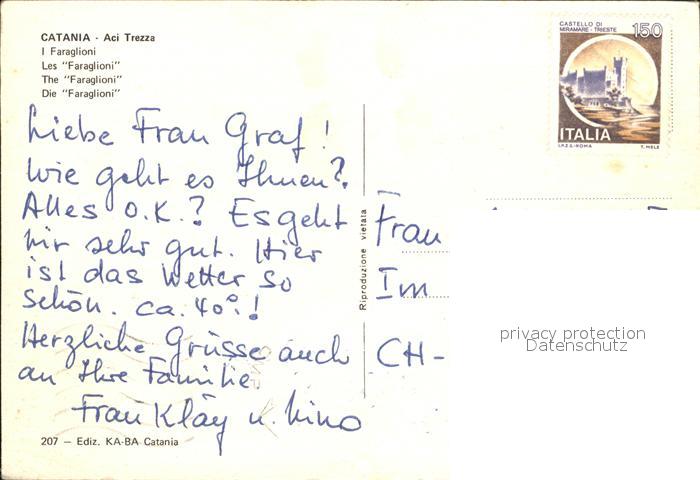 CATANIA - Aci Trezza
I Faraglioni
Les "Faraglioni"
The "Faraglioni"
Die "Faraglioni"
CASTELLO DI
MIRAMARE - TRIESTE
150
ITALIA
I.P.Z.S. - ROMA T. MELE
Liebe Frau Graf!
Wie geht es Ihnen?
Alles O.K.? Es geht
mir sehr gut. Hier
ist das Wetter so
schön. ca. 40°!
Herzliche Grüsse auch
an Ihre Familie
Frau Kläy u. Nino
Riproduzione vietata
Frau
Im
CH-
privacy protection
Datenschutz
207 — Ediz. KA-BA Catania